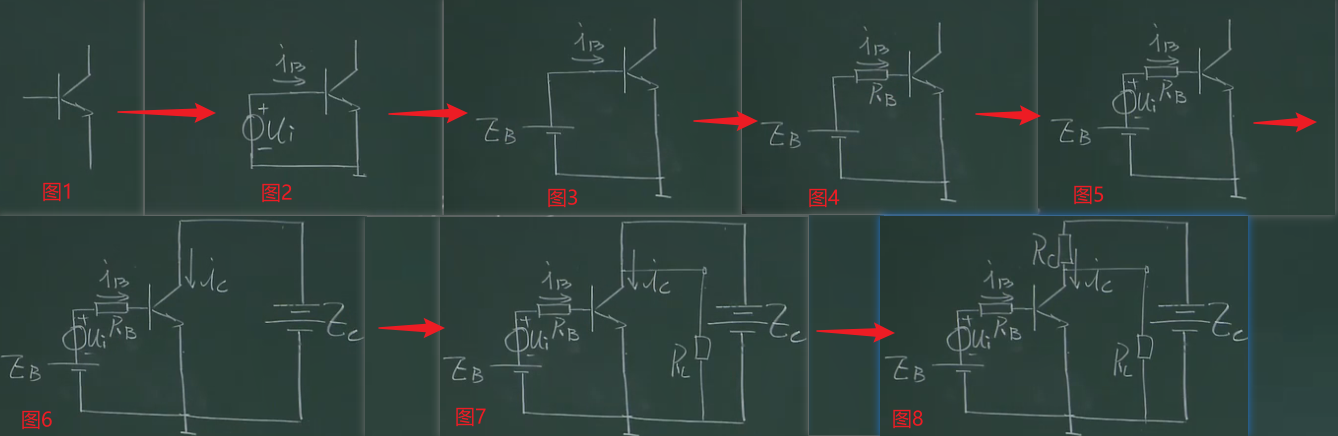 图1
iB
ui
图2
iB
EB
图3
iB
RB
EB
图4
iB
ui RB
EB
图5
iB
iC
ui RB
EC
EB
图6
iB
iC
ui RB
EC
RL
EB
图7
RC
iB
iC
ui RB
EC
RL
EB
图8